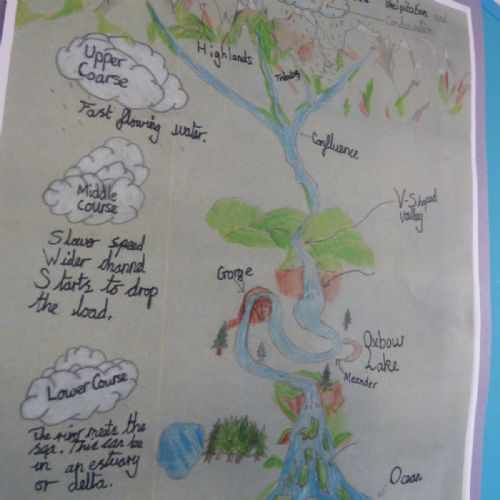 Precipitation and
Condensation
Highlands
Tributary
Upper
Coarse
Fast flowing water.
Confluence
Middle
Course
V-Shaped
Valley
Slower speed
Wider channel
Starts to drop
the load.
Gorge
Oxbow
Lake
Meander
Lower Course
The river meets the
sea. This can be
in an estuary
or delta.
Ocean